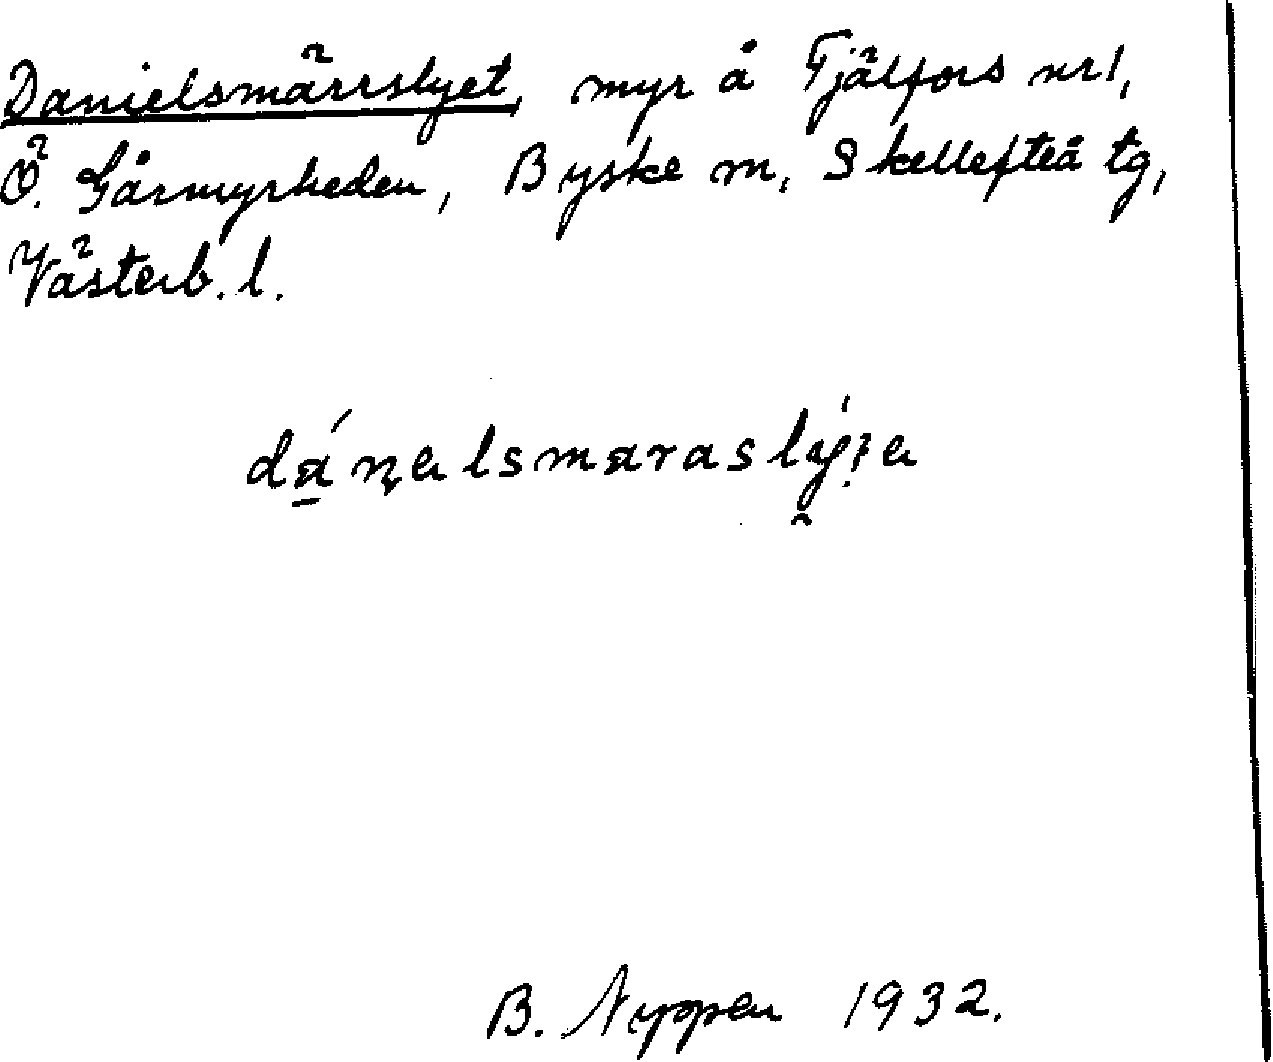 Danielsmärrslyet, myr å Tjälfors nr 1,
Ö. Gårmyrheden, Byske sn, Skellefteå tg,
Västerb. l.
B. Nyppen 1932.